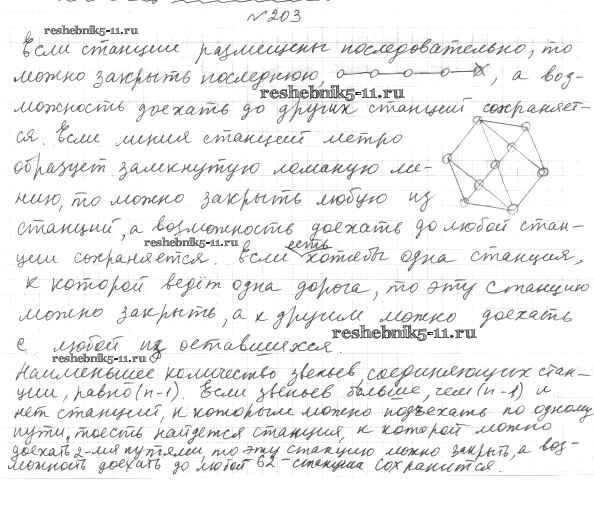 №203
reshebnik5-11.ru
Если станции размещены последовательно, то
можно закрыть последнюю, , а воз-
reshebnik5-11.ru
можность доехать до других станций сохраняет-
ся. Если линия станций метро
образует замкнутую ломаную ли-
нию, то можно закрыть любую из
станций, а возможность доехать до любой стан-
reshebnik5-11.ru
есть
ции сохраняется. Если хотябы одна станция,
к которой ведёт одна дорога, то эту станцию
можно закрыть, а к другим можно доехать
reshebnik5-11.ru
с любой из оставшихся.
reshebnik5-11.ru
Наименьшее количество звеньев соединяющих стан-
ции, равно (n-1). Если звеньев больше, чем (n-1) и
нет станций, к которым можно подъехать по одному
пути, тоесть найдется станция, к которой можно
доехать 2-мя путями, то эту станцию можно закрыть, а воз-
можность доехать до любой 62-станции сохранится.